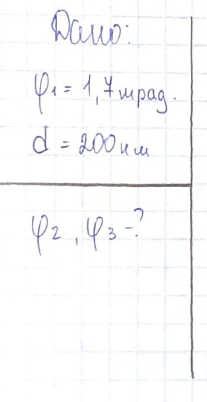 Дано:
φ₁ = 1,7 мрад.
d = 200 нм
φ₂, φ₃ - ?